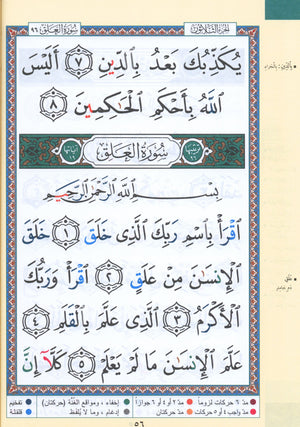 الجزء الثلاثون
سورة العلق ٩٦
يُكَذِّبُكَ بَعْدُ بِالدِّينِ ٧ أَلَيْسَ
اللَّهُ بِأَحْكَمِ الْحَاكِمِينَ ٨
سُورَةُ الْعَلَقِ
بِسْمِ اللَّهِ الرَّحْمَٰنِ الرَّحِيمِ
اقْرَأْ بِاسْمِ رَبِّكَ الَّذِي خَلَقَ ١ خَلَقَ
الْإِنسَٰنَ مِنْ عَلَقٍ ٢ اقْرَأْ وَرَبُّكَ
الْأَكْرَمُ ٣ الَّذِي عَلَّمَ بِالْقَلَمِ ٤
عَلَّمَ الْإِنسَٰنَ مَا لَمْ يَعْلَمْ ٥ كَلَّا إِنَّ
بالدّين: بالجزاء
علق
دم جامد
مدّ ٦ حركات لزوماً
مدّ ٢ أو ٤ أو ٦ جوازاً
إخفاء، ومواقع الغُنَّة (حركتان)
تفخيم
مدّ واجب ٤ أو ٥ حركات
مدّ حركتان
إدغام، وما لا يُلفظ
قلقلة
٥٦